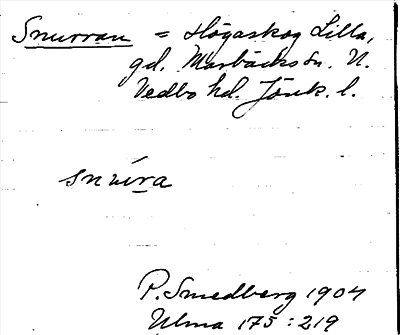 Snurran = Högaskog Lilla,
gd. Marbäcks sn. N.
Vedbo hd. Jönk. l.
snúra
P. Smedberg 1904
Ulma 175:219